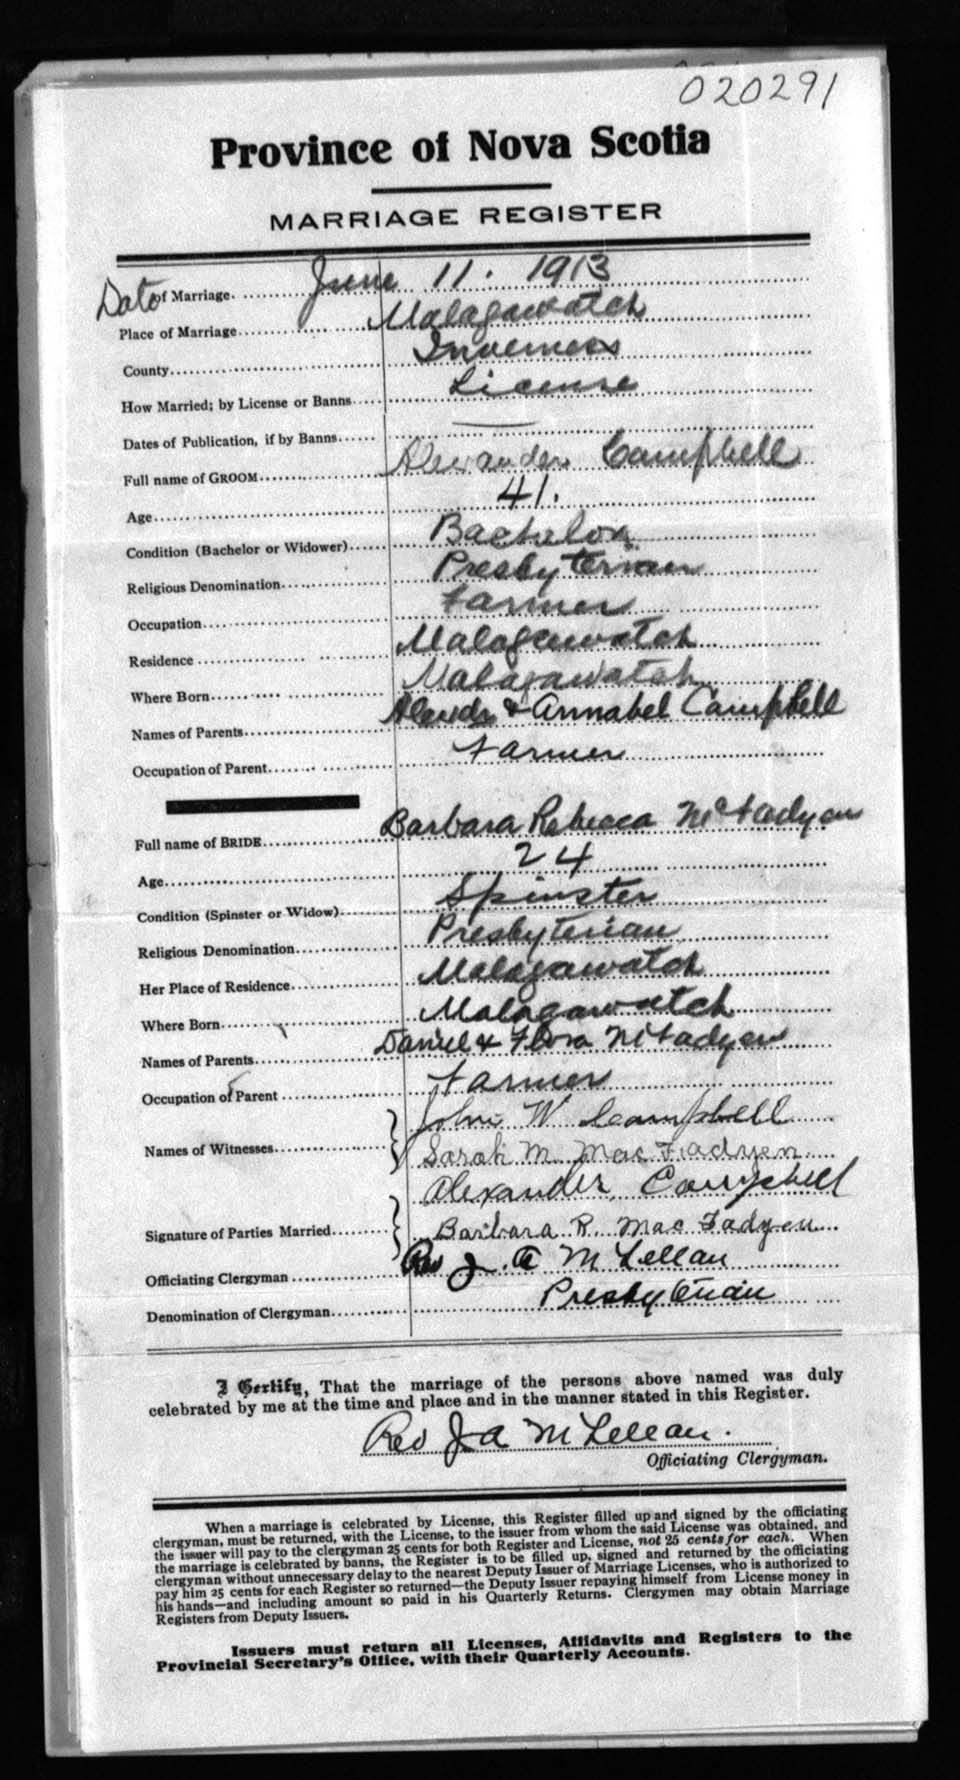 020291
Province of Nova Scotia
MARRIAGE REGISTER
Date of Marriage. June 11. 1913
Place of Marriage Malagawatch
County Inverness
How Married; by License or Banns License
Dates of Publication, if by Banns —
Full name of GROOM Alexander Campbell
Age 41.
Condition (Bachelor or Widower) Bachelor
Religious Denomination Presbyterian
Occupation Farmer
Residence Malagawatch
Where Born Malagawatch
Names of Parents Alexdr & Annabel Campbell
Occupation of Parent Farmer
Full name of BRIDE Barbara Rebecca McFadyen
Age 24
Condition (Spinster or Widow) Spinster
Religious Denomination Presbyterian
Her Place of Residence Malagawatch
Where Born Malagawatch
Names of Parents Daniel & Flora McFadyen
Occupation of Parent Farmer
John W Campbell
Names of Witnesses Sarah M. MacFadyen
Alexander Campbell
Signature of Parties Married Barbara R. MacFadyen
Officiating Clergyman Rev J. A McLellan
Denomination of Clergyman Presbyterian
I Certify, That the marriage of the persons above named was duly
celebrated by me at the time and place and in the manner stated in this Register.
Rev J A McLellan.
Officiating Clergyman.
When a marriage is celebrated by License, this Register filled up and signed by the officiating
clergyman, must be returned, with the License, to the issuer from whom the said License was obtained, and
the issuer will pay to the clergyman 25 cents for both Register and License, not 25 cents for each. When
the marriage is celebrated by banns, the Register is to be filled up, signed and returned by the officiating
clergyman without unnecessary delay to the nearest Deputy Issuer of Marriage Licenses, who is authorized to
pay him 25 cents for each Register so returned—the Deputy Issuer repaying himself from License money in
his hands—and including amount so paid in his Quarterly Returns. Clergymen may obtain Marriage
Registers from Deputy Issuers.
Issuers must return all Licenses, Affidavits and Registers to the
Provincial Secretary's Office, with their Quarterly Accounts.